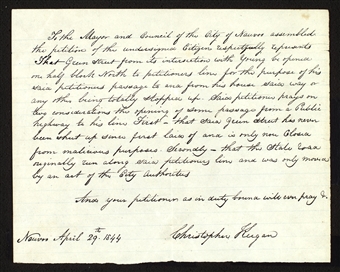 To the Mayor and Council of the City of Nauvoo assembled
the petition of the undersigned Citizen respectfully represents
That Green Street from its intersection with Young be opened
on half block North to petitioners line for the purpose of his
said petitioners passage to and from his house said way or
any other being totally stopped up - Said petitioner prays on
two considerations the opening of some passage from a Public
highway to his line First - that said Green Street has never
been shut up since first laid of and is only now Closed
from malicious purposes. Secondly - that the State Road
originally run along said petitioners line and was only moved
by an act of the City Authorities
And your petitioner as in duty bound will ever pray &
Nauvoo April 29th. 1844
Christopher